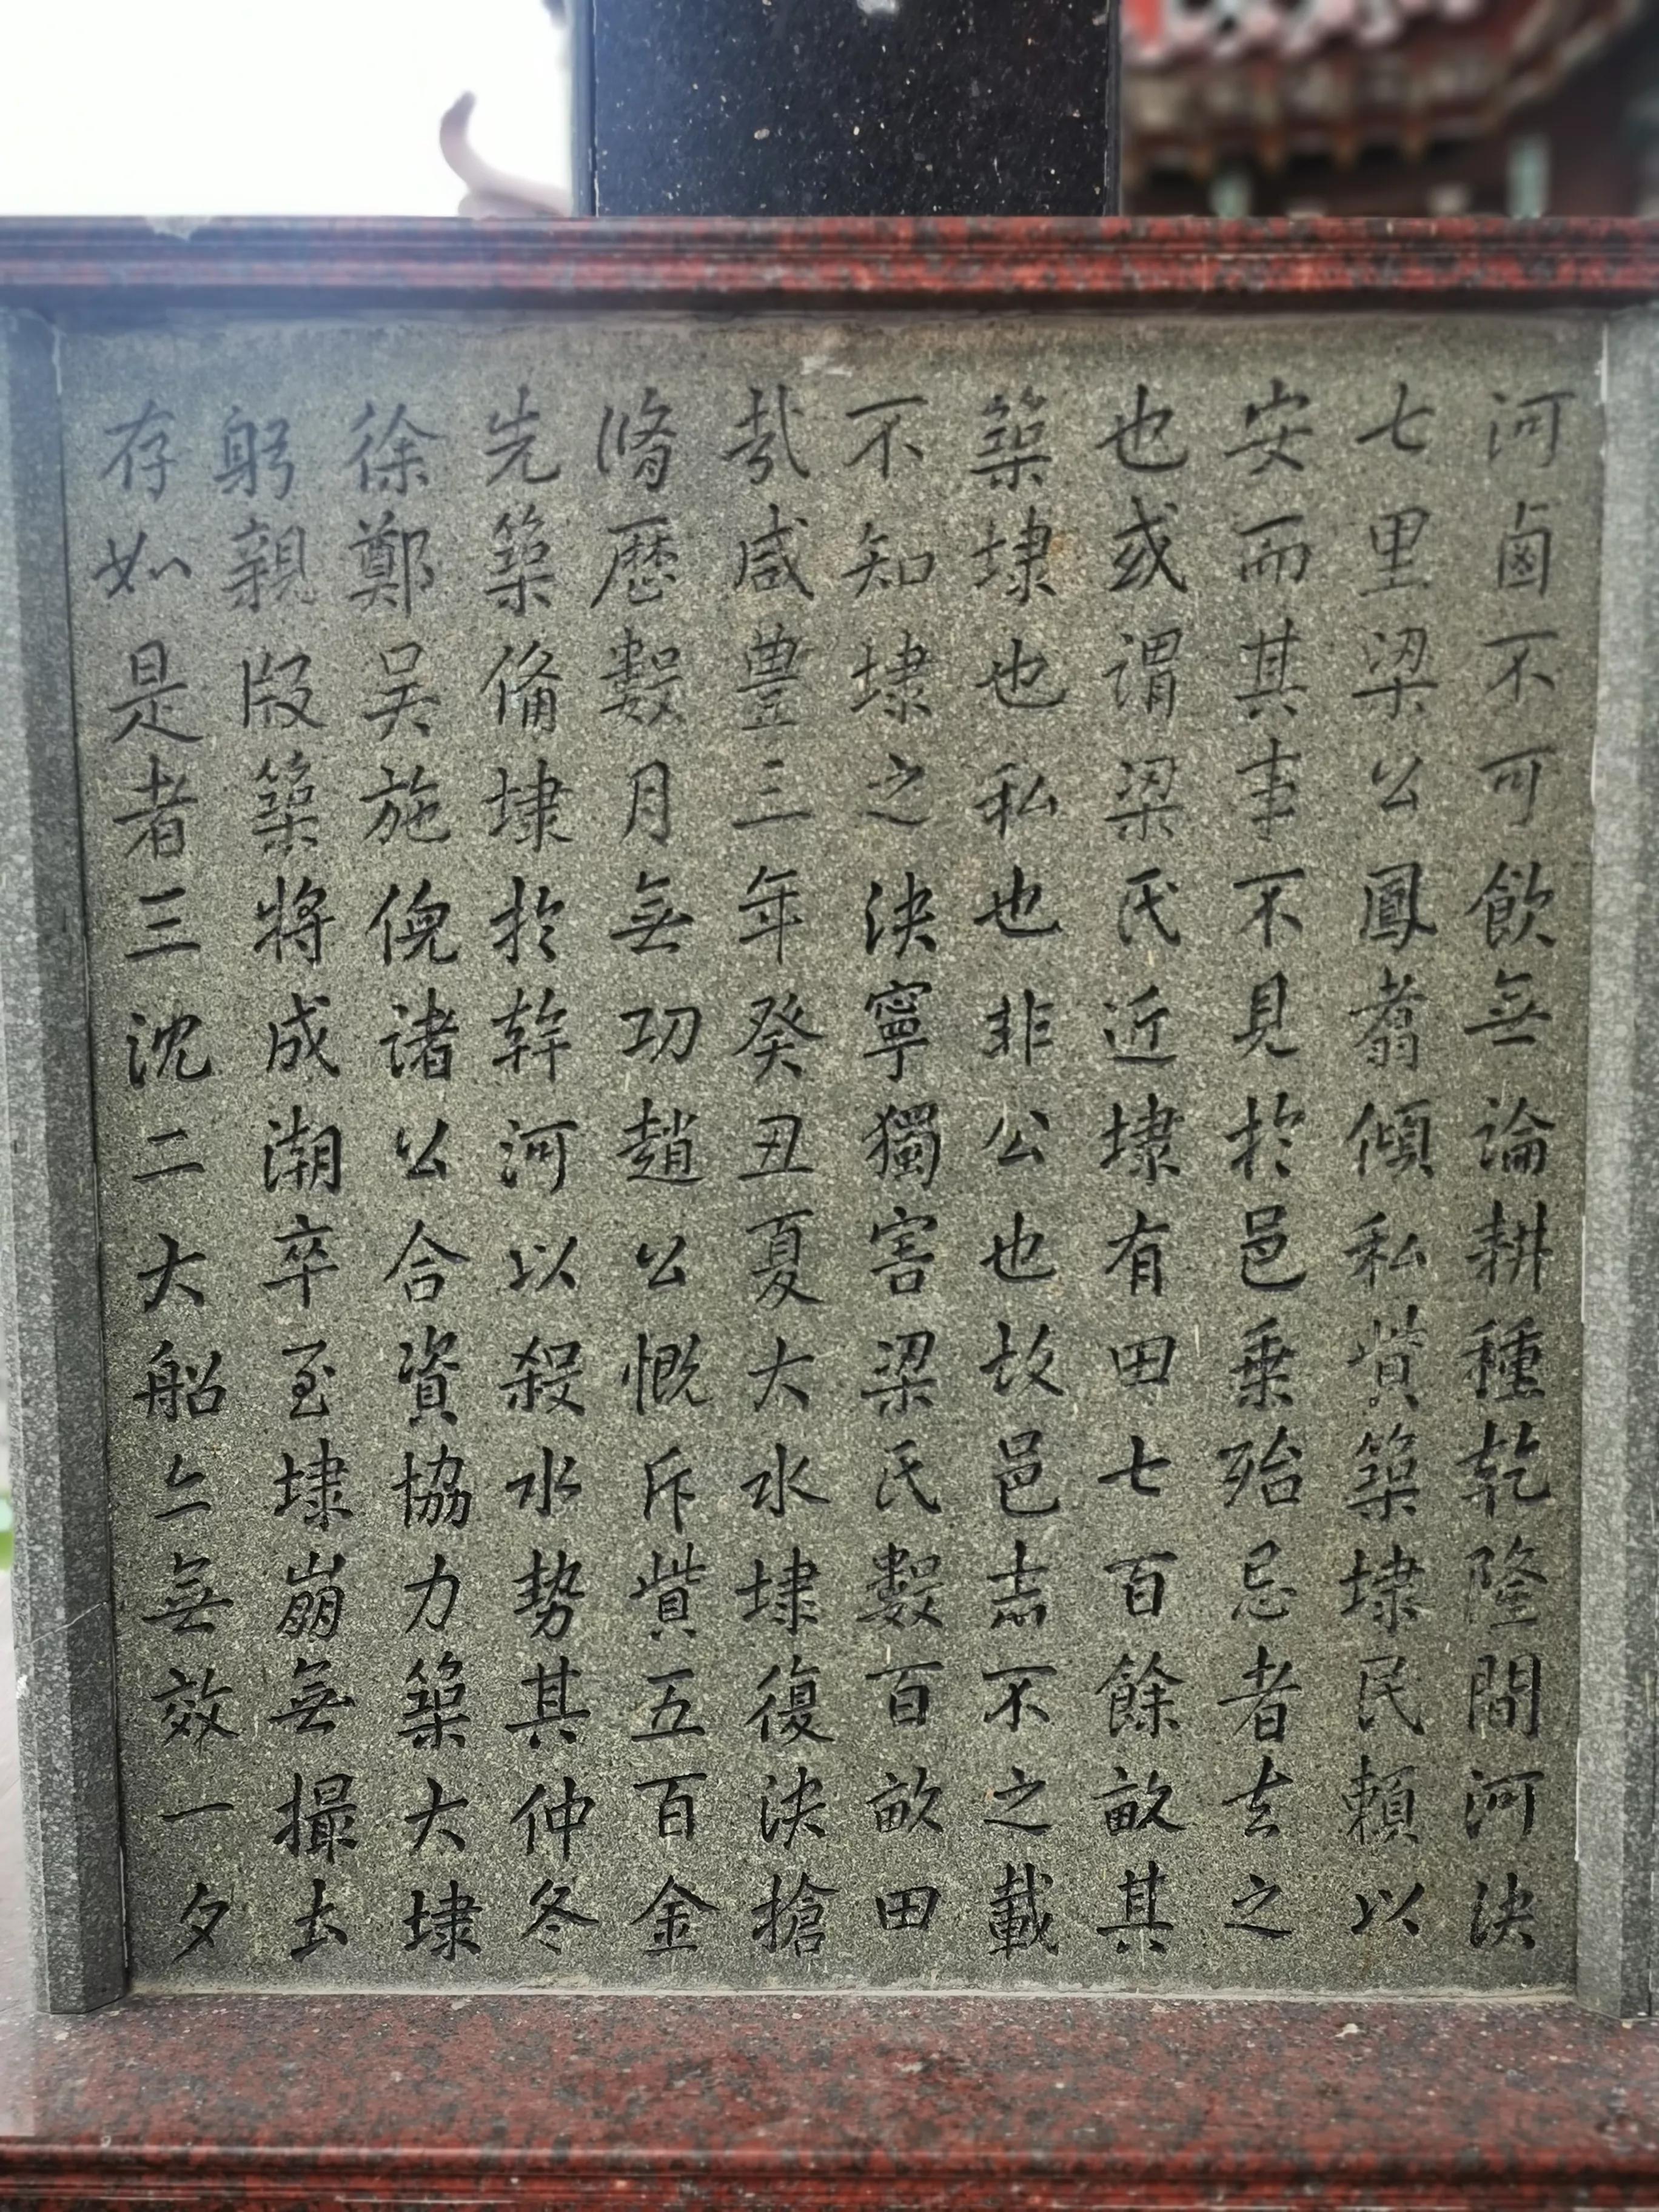 河鹵不可飲無論耕種乾隆間河決
七里梁公鳳翥傾私貲築埭民賴以
安而其事不見於邑乗殆忌者去之
也或謂梁氏近埭有田七百餘畝其
築埭也私也非公也故邑志不之載
不知埭之決寧獨害梁氏數百畝田
㦲咸豊三年癸丑夏大水埭復決搶
脩歷數月無功趙公慨斥貲五百金
先築偹埭於幹河以殺水勢其仲冬
徐鄭吴施倪諸公合資協力築大埭
躬親版築將成潮卒至埭崩無撮土
存如是者三沈二大船亡無效一夕